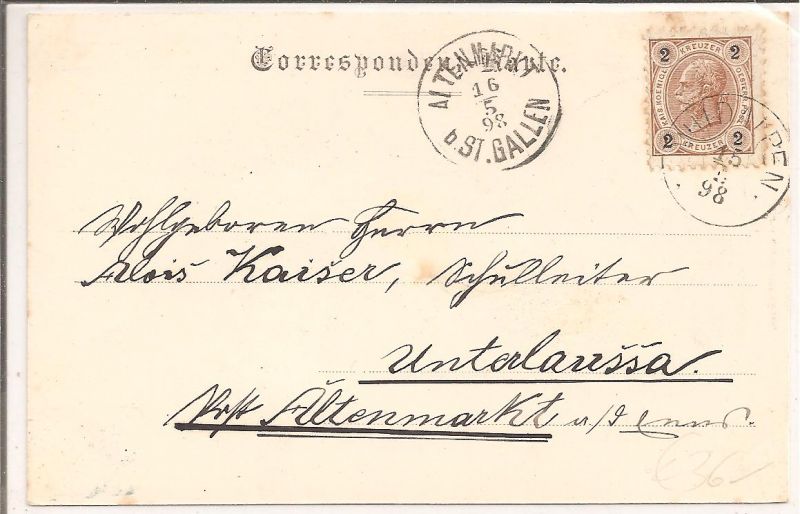 Correspondenz-Karte.
ALTENMARKT
16
5
98
b. ST. GALLEN
2 KREUZER 2
KAIS. KOENIGL. OESTERR. POST.
2 KREUZER 2
98
Wohlgeboren Herrn
Alois Kaiser, Schulleiter
Unterlaussa.
Post Altenmarkt a/d Enns.
36